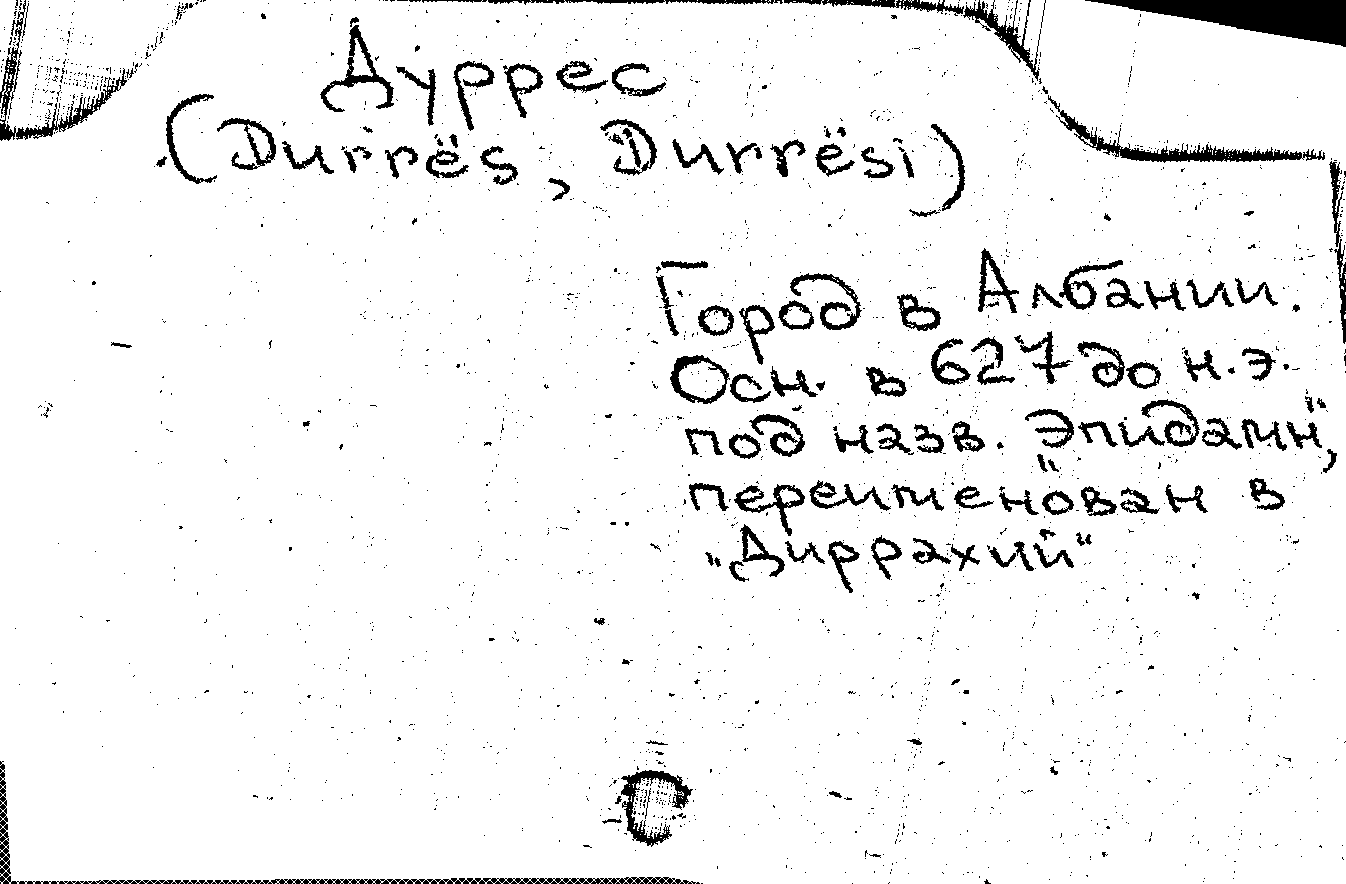 Дуррес
(Durrës, Durrësi)
Город в Албании.
Осн. в 627 до н.э.
под назв. „Эпидамн“,
переименован в
„Диррахий“